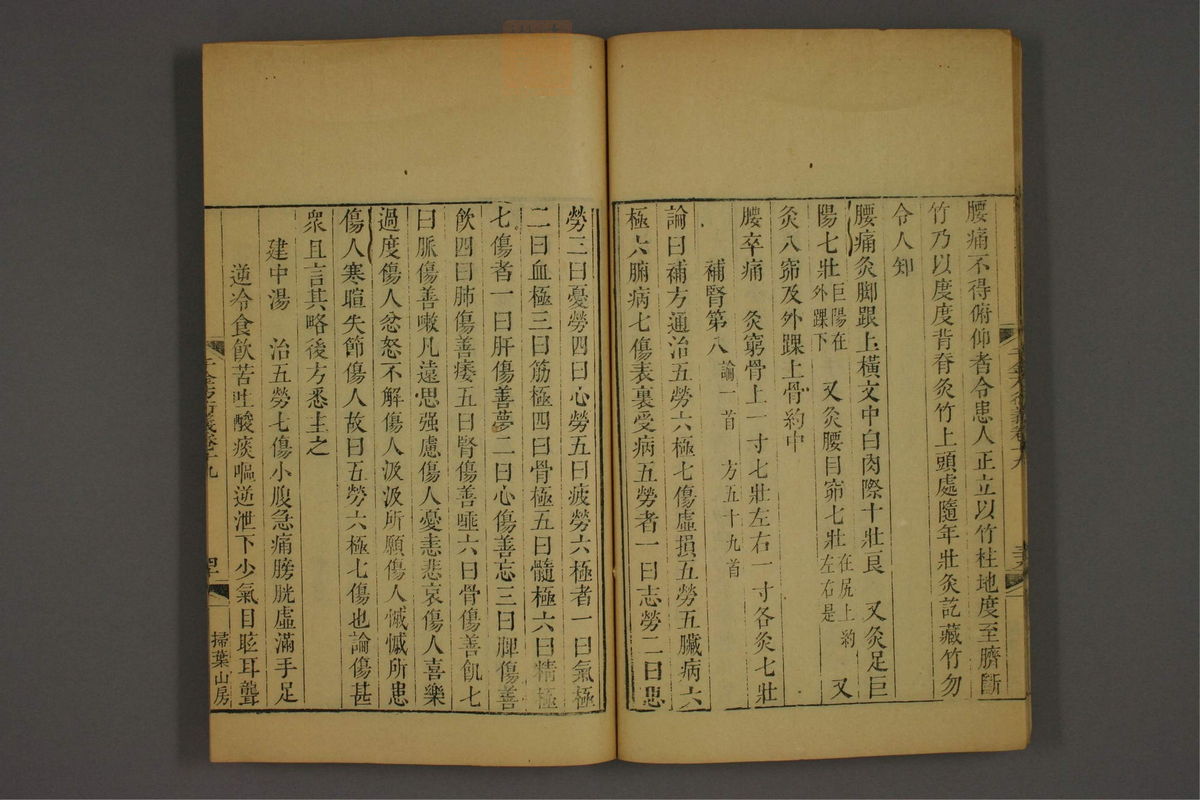 腰痛不得俯仰者令患人正立以竹柱地度至臍斷
竹乃以度度背脊灸竹上頭處隨年壯灸訖藏竹勿
令人知
腰痛灸脚跟上橫文中白肉際十壯良 又灸足巨
陽七壯巨陽在外踝下 又灸腰目窌七壯在尻上約左右是 又
灸八窌及外踝上骨約中
腰卒痛 灸窮骨上一寸七壯左右一寸各灸七壯
補腎第八論一首 方五十九首
論曰補方通治五勞六極七傷虛損五勞五臟病六
極六腑病七傷表裏受病五勞者一曰志勞二曰思
勞三曰憂勞四曰心勞五曰疲勞六極者一曰氣極
二曰血極三曰筋極四曰骨極五曰髓極六曰精極
七傷者一曰肝傷善夢二曰心傷善忘三曰脾傷善
飲四曰肺傷善痿五曰腎傷善唾六曰骨傷善飢七
曰脈傷善嗽凡遠思强慮傷人憂恚悲哀傷人喜樂
過度傷人忿怒不解傷人汲汲所願傷人慽慽所患
傷人寒暄失節傷人故曰五勞六極七傷也論傷甚
衆且言其略後方悉主之
建中湯 治五勞七傷小腹急痛膀胱虛滿手足
逆冷食飲苦吐酸痰嘔逆泄下少氣目眩耳聾
千金方衍義卷十九
掃葉山房